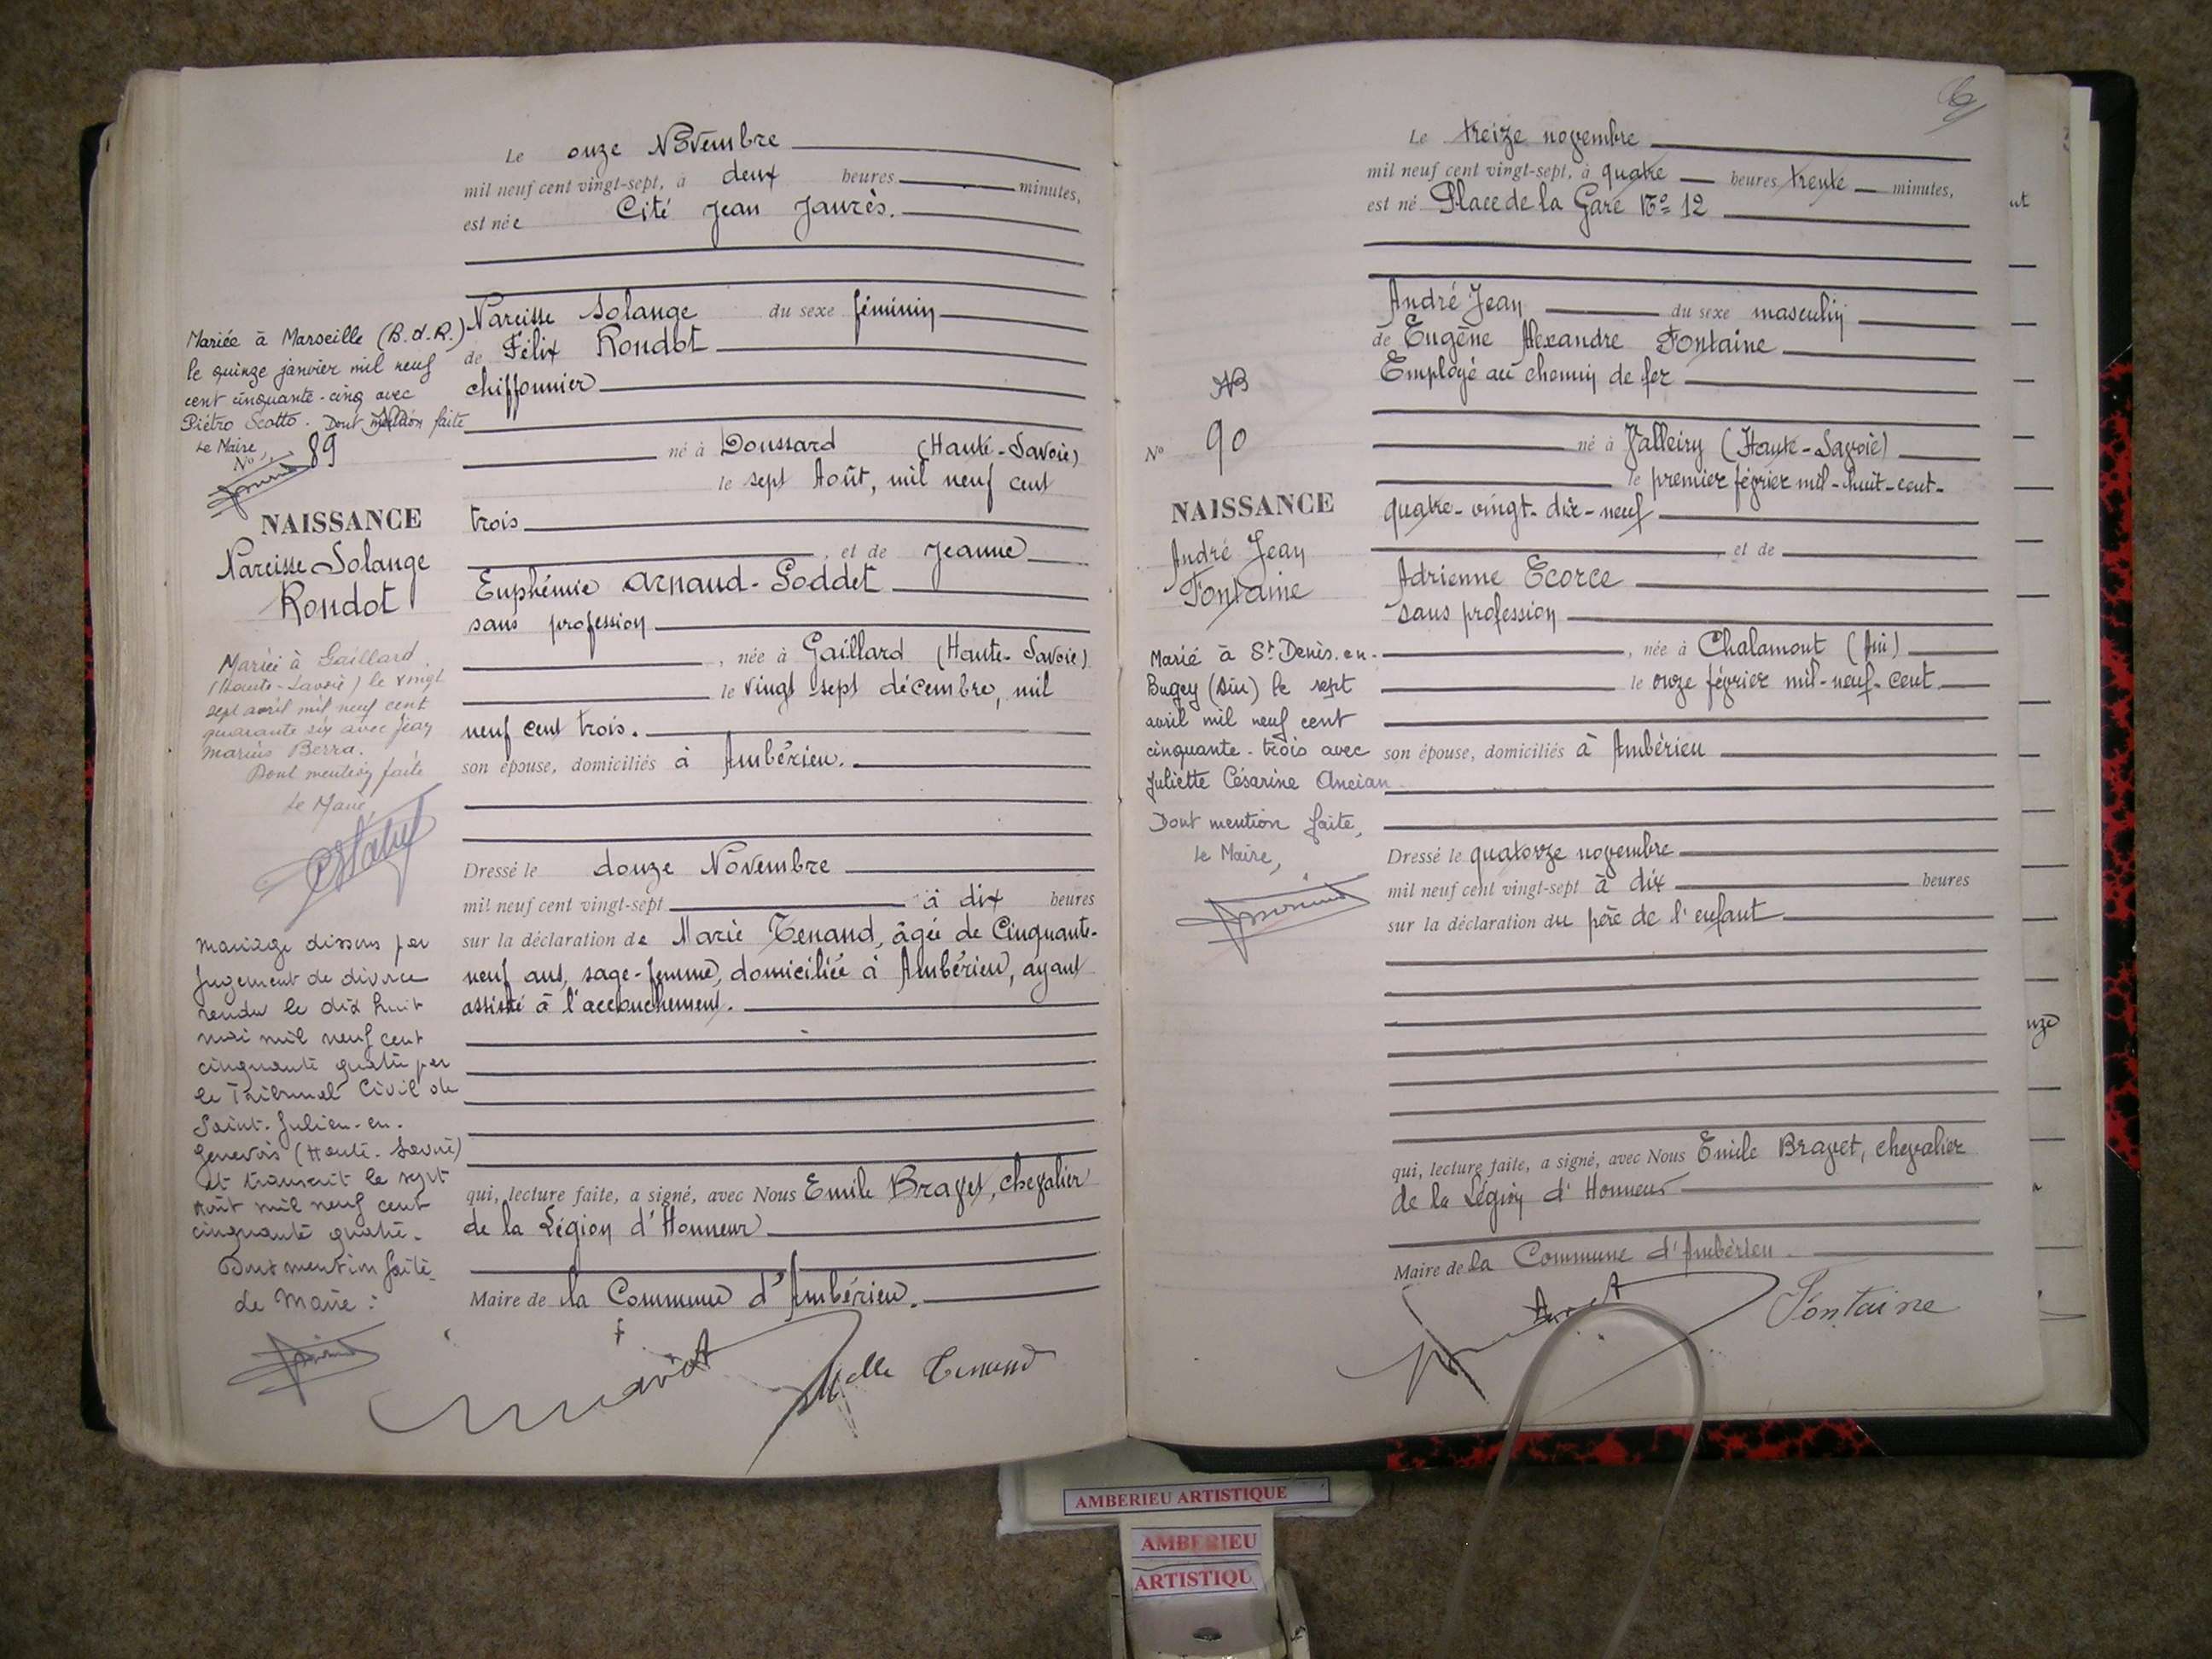 Le onze Novembre
mil neuf cent vingt-sept, à deux heures minutes,
est née Cité Jean Jaurès.
Narcisse Solange du sexe féminin
de Félix Rondot
chiffonnier
né à Doussard (Haute-Savoie)
le sept Août, mil neuf cent
trois
, et de Jeanne
Euphémie Arnaud-Goddet
sans profession
, née à Gaillard (Haute-Savoie)
le vingt sept décembre, mil
neuf cent trois.
son épouse, domiciliés à Ambérieu.
Dressé le douze Novembre
mil neuf cent vingt-sept à dix heures
sur la déclaration de Marie Tenand, âgée de Cinquante-
neuf ans, sage-femme, domiciliée à Ambérieu, ayant
assisté à l'accouchement.
qui, lecture faite, a signé, avec Nous Emile Bravet, chevalier
de la Légion d'Honneur
Maire de la Commune d'Ambérieu.
Melle Tenand
Mariée à Marseille (B.d.R.)
le quinze janvier mil neuf
cent cinquante-cinq avec
Piétro Scotto. Dont mention faite
Le Maire,
No 89
NAISSANCE
Narcisse Solange
Rondot
Mariée à Gaillard
(Haute-Savoie) le vingt
sept avril mil neuf cent
quarante six avec Jean
Marius Berra.
Dont mention faite
Le Maire,
Mariage dissous par
jugement de divorce
rendu le dix huit
mai mil neuf cent
cinquante quatre par
le Tribunal Civil de
Saint-Julien-en-
Genevois (Haute-Savoie)
et transcrit le sept
août mil neuf cent
cinquante quatre.
Dont mention faite.
Le Maire :
Le treize novembre
mil neuf cent vingt-sept, à quatre heures trente minutes,
est né Place de la Gare No 12
André Jean du sexe masculin
de Eugène Alexandre Fontaine
Employé au chemin de fer
né à Valleiry (Haute-Savoie)
le premier février mil-huit-cent-
quatre-vingt-dix-neuf
, et de
Adrienne Ecorce
sans profession
, née à Chalamont (Ain)
le onze février mil-neuf-cent
son épouse, domiciliés à Ambérieu
Dressé le quatorze novembre
mil neuf cent vingt-sept à dix heures
sur la déclaration du père de l'enfant
qui, lecture faite, a signé, avec Nous Emile Bravet, chevalier
de la Légion d'Honneur
Maire de la Commune d'Ambérieu.
Fontaine
No 90
NAISSANCE
André Jean
Fontaine
Marié à St Denis-en-
Bugey (Ain) le sept
avril mil neuf cent
cinquante-trois avec
Juliette Césarine Ancian
Dont mention faite,
Le Maire,
AMBERIEU ARTISTIQUE
AMBERIEU
ARTISTIQU